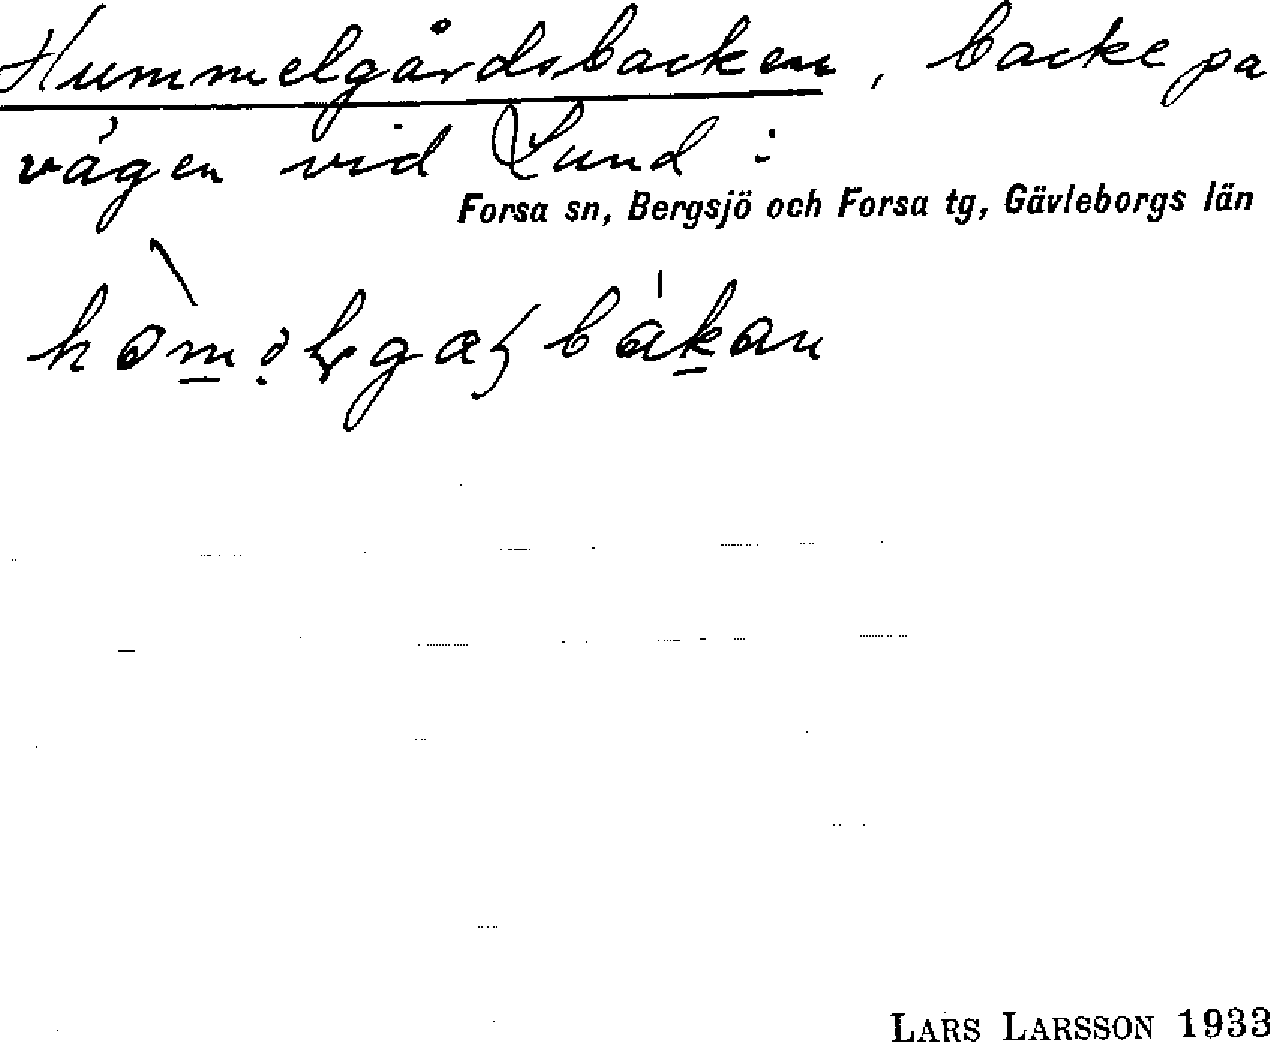 Hummelgårdsbacken, backe på
vägen vid Lund:
Forsa sn, Bergsjö och Forsa tg, Gävleborgs län
LARS LARSSON 1933